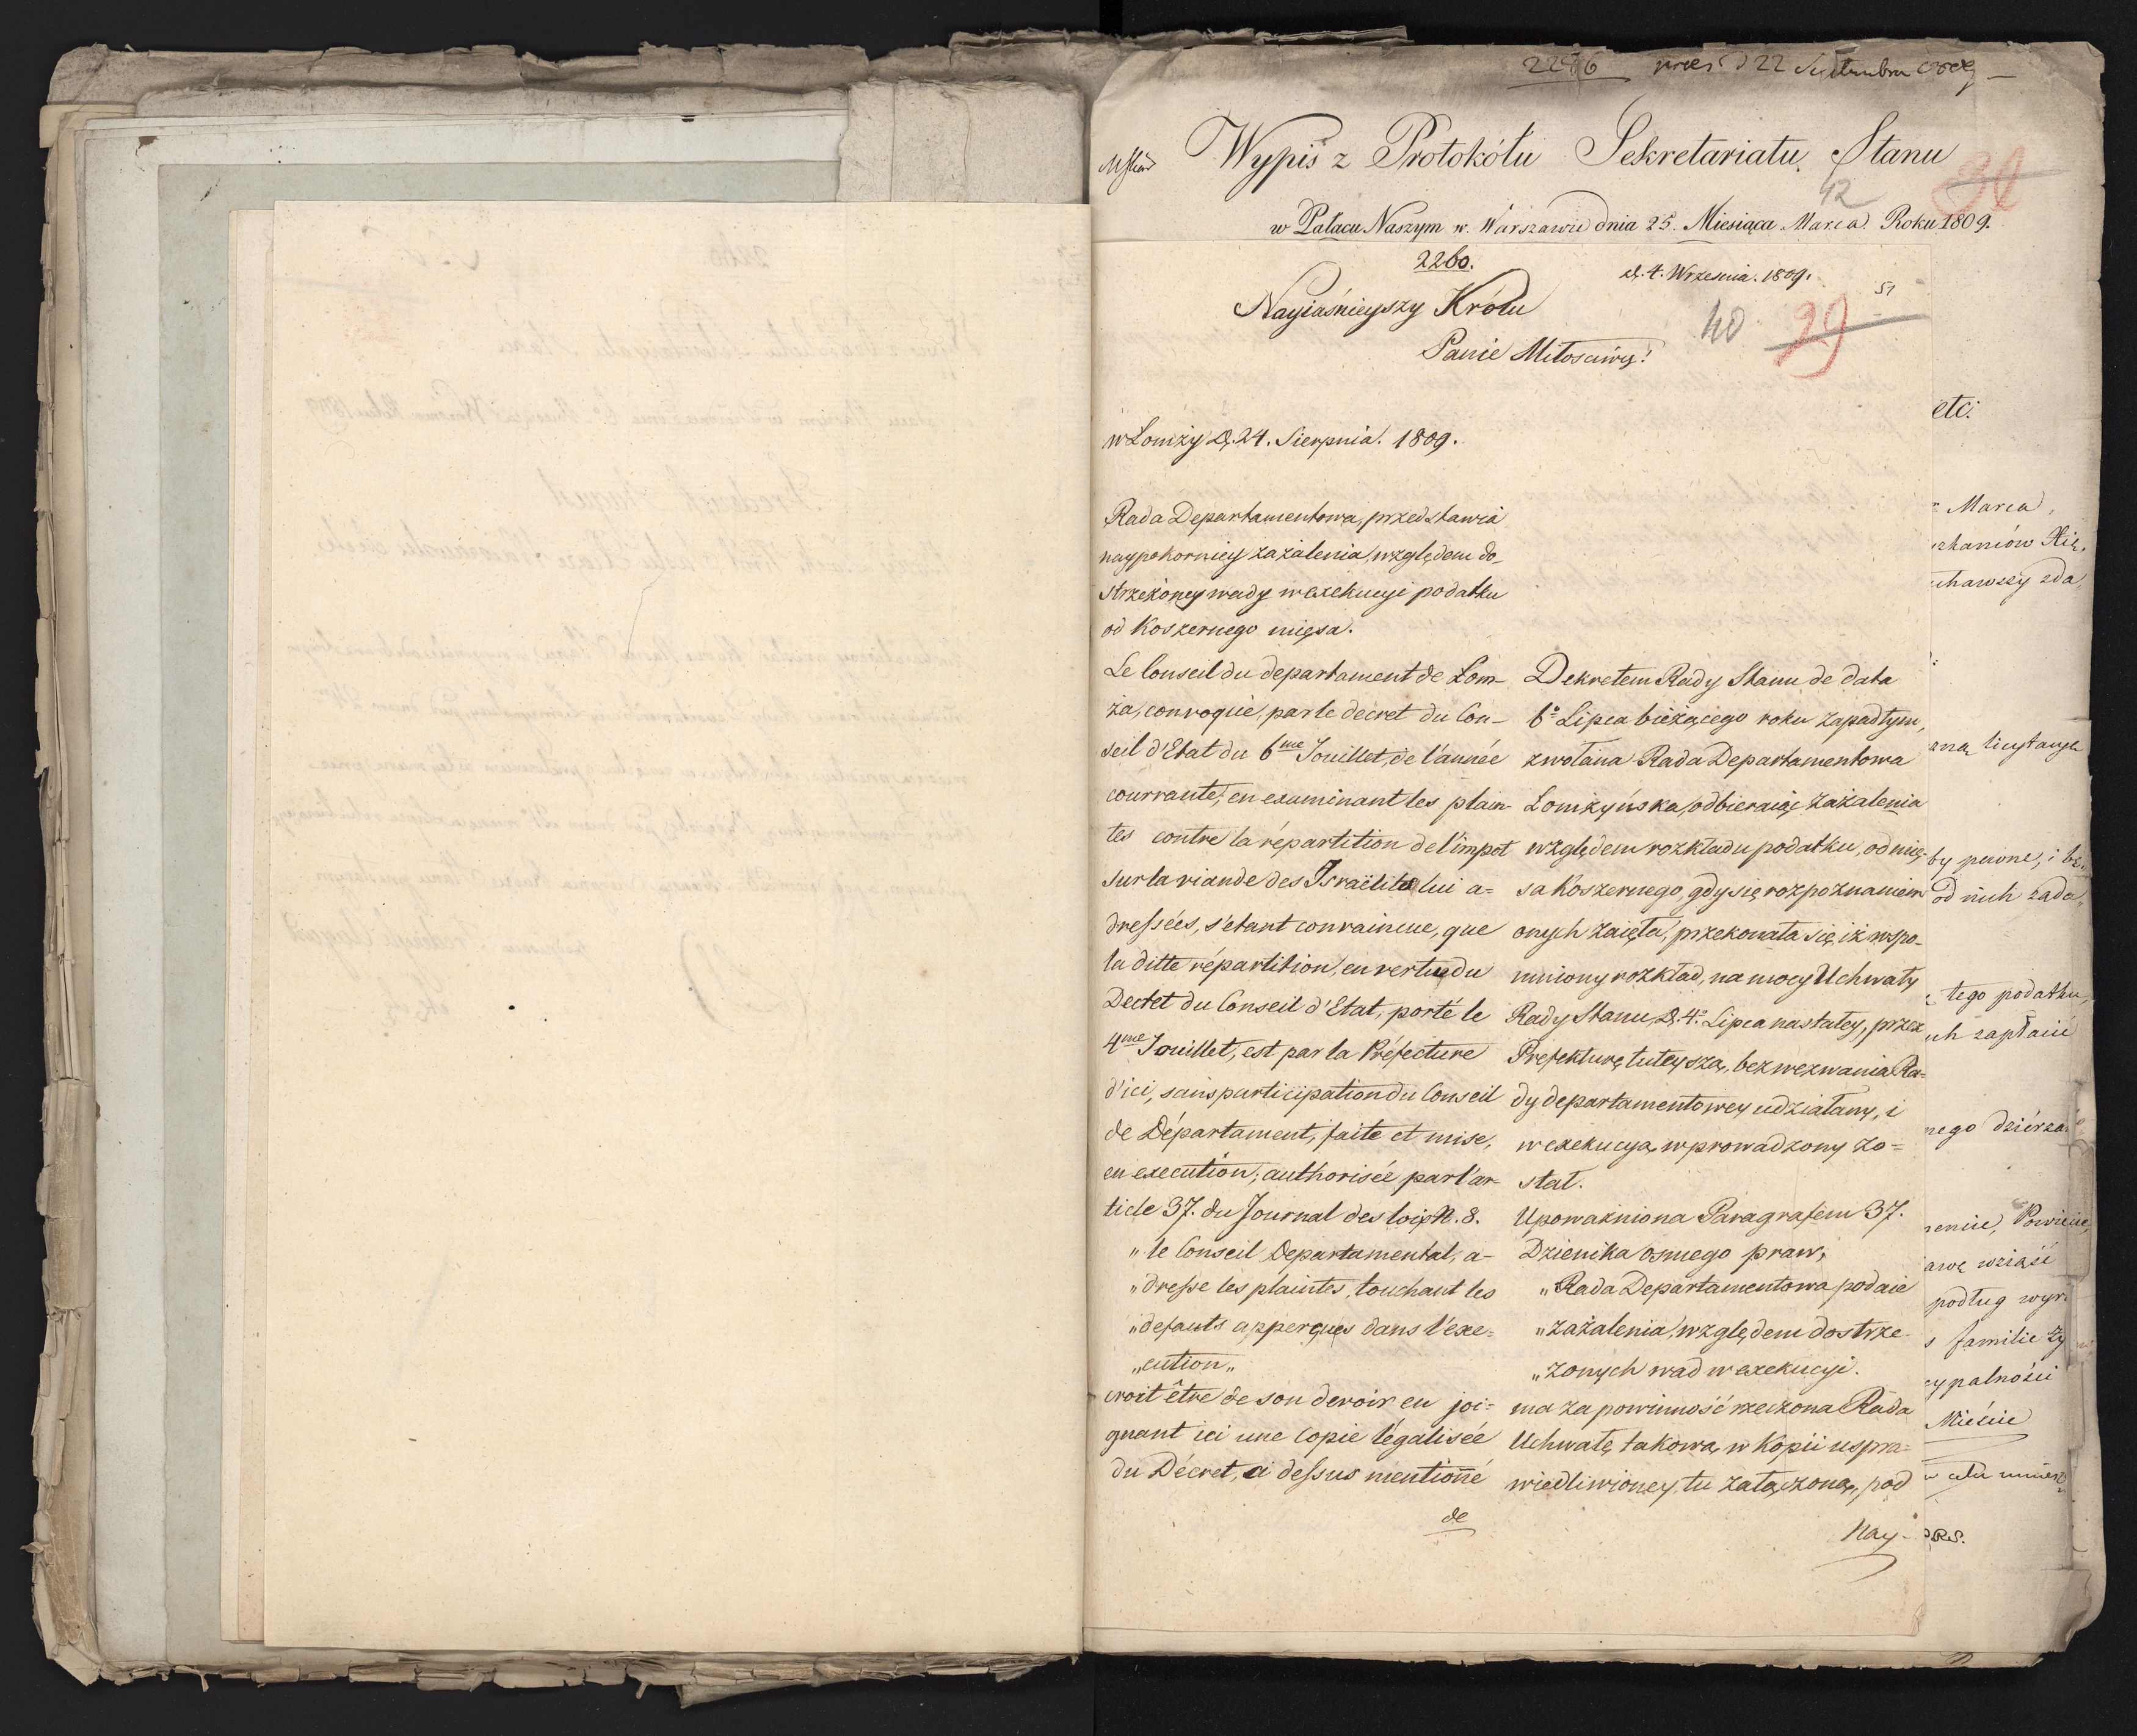 2286 22 Septembra
Wypis z Protokółu Sekretariatu Stanu
42
w Pałacu Naszym w Warszawie dnia 25. Miesiąca Marca Roku 1809.
2260.
d. 4. Września. 1809.
51
Nayiaśnieyszy Królu
40 29
Panie Miłosciwy!
w Łomży D. 24. Sierpnia. 1809.
Rada Departamentowa, przedstawia
naypokorniey zażalenia, względem do_
strzeżoney wady w exekucyi podatku
od Koszernego mięsa.
Le Conseil du departament de Lom-
ża, convoqué, par le décret du Con-
seil d'Etat du 6me Jouillet, de l'année
courrante, en examinant les plain-
tes contre la répartition de l'impot
sur la viande des Israëlites lui a=
dressées, s'etant convaincue, que
la ditte répartition, en vertue du
Decret du Conseil d'Etat, porté le
4me Jouillet, est par la Préfecture
d'ici, sans participation du Conseil
de Département, faite et mise,
en execution; authorisée par l'ar-
ticle 37. du Journal des loix N. 8.
„ le Conseil Departamental, a-
„ dresse les plaintes, touchant les
„ defauts apperçues dans l'exe=
„ cution „
croit être de son devoir en joi=
gnant ici une Copie légalisée
du Décret, ci dessus mentioñé
de
Dekretem Rady Stanu de data
6o Lipca bieżącego roku zapadłym,
zwołana Rada Departamentowa
Łomżyńska, odbieraiąc zażalenia
względem rozkładu podatku, od mię-
sa Koszernego, gdy się rozpoznaniem
onych zaięła, przekonała się, iż wspo-
mniony rozkład, na mocy Uchwały
Rady Stanu, D. 4o Lipca nastałey, przez
Prefekturę tuteyszą, bez wezwania Ra=
dy departamentowey udziałany, i
w exekucyą wprowadzony zo=
stał.
Upoważniona Paragrafem 37.
Dzienika osmego praw,
„ Rada Departamentowa podaie
„ zażalenia, względem dostrze-
„ żonych wad w exekucyi.
ma za powinność rzeczona Rada
Uchwałę takową w Kopii uspra=
wiedliwioney, tu załączoną, pod
Nay-
etc.
Marca,
tego podatku,
podług
familie
Mieście